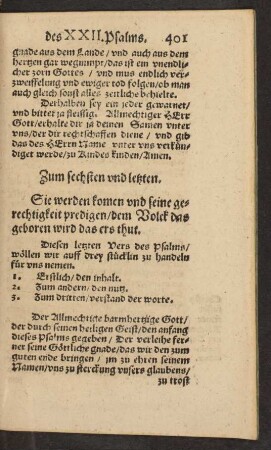 des XXII. Psalms. 401
gnade aus dem Lande / vnd auch aus dem
hertzen gar wegnimpt / das ist ein vnendli
cher zorn Gottes / vnd mus endlich ver-
zweiffelung vnd ewiger tod folgen / ob man
auch gleich sonst alles zeitliche behielte.
Derhalben sey ein jeder gewarnet /
vnd bitte ja fleissig. Allmechtiger HErr
Gott / erhalte dir ja deinen Samen vnter
vns / der dir rechtschaffen diene / vnd gib
das des HErrn Name vnter vns verkün-
diget werde / zu Kindes kinden / Amen.
Zum sechsten vnd letzten.
Sie werden komen vnd seine ge-
rechtigkeit predigen / dem Volck das
geboren wird das ers thut.
Diesen letzten Vers des Psalms /
wöllen wir auff drey stücklin zu handeln
für vns nemen.
1. Erstlich / den inhalt.
2. Zum andern / den nutz.
3. Zum dritten / verstand der worte.
Der Allmechtige barmhertzige Gott /
der durch seinen heiligen Geist / den anfang
dieses Psalms gegeben / Der verleihe fer-
ner seine Göttliche gnade / das wir den zum
guten ende bringen / jm zu ehren seinem
Namen / vns zu sterckung vnsers glaubens /
zu trost